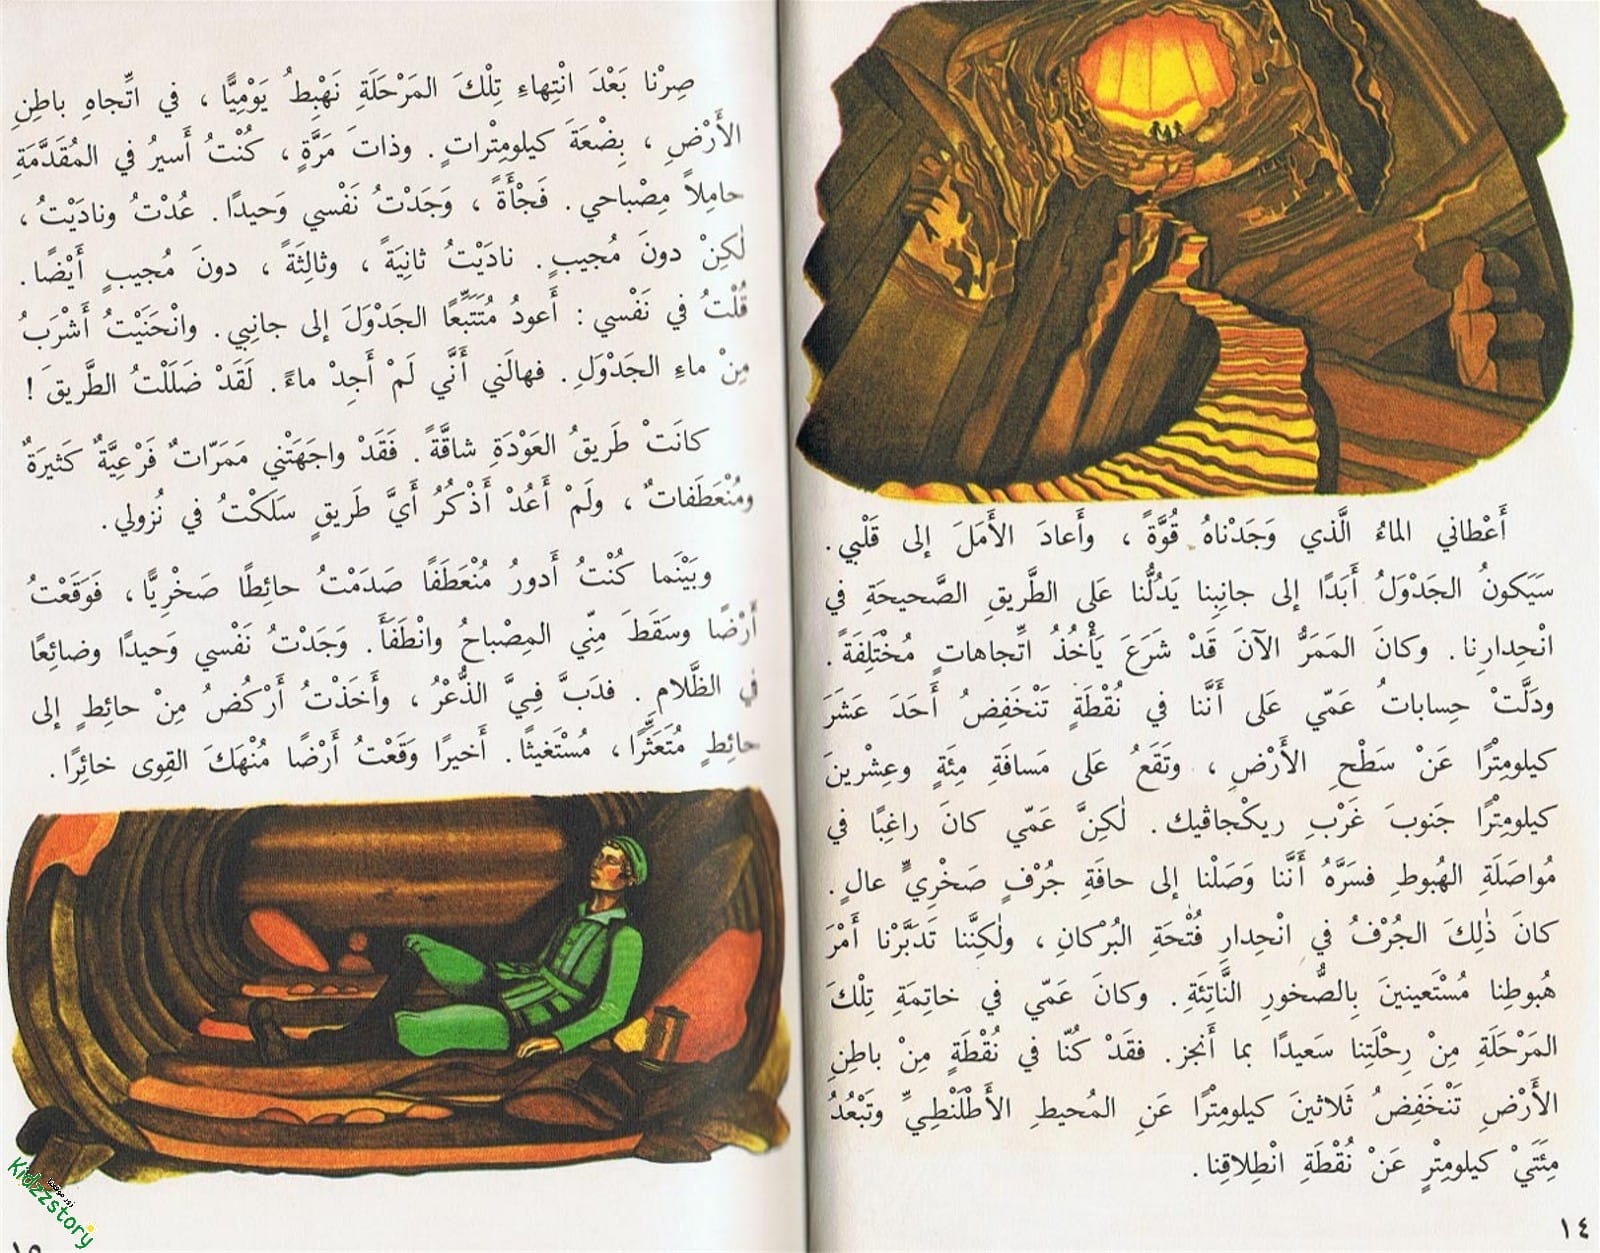 أَعْطاني الماءُ الَّذي وَجَدْناهُ قُوَّةً ، وأَعادَ الأَمَلَ إلى قَلْبي.
سَيَكونُ الجَدْوَلُ أَبَدًا إلى جانِبِنا يَدُلُّنا عَلى الطَّريقِ الصَّحيحَةِ في
انْحِدارِنا. وكانَ المَمَرُّ الآنَ قَدْ شَرَعَ يَأْخُذُ اتِّجاهاتٍ مُخْتَلِفَةً.
ودَلَّتْ حِساباتُ عَمّي عَلى أَنَّنا في نُقْطَةٍ تَنْخَفِضُ أَحَدَ عَشَرَ
كيلومِتْرًا عَنْ سَطْحِ الأَرْضِ ، وتَقَعُ عَلى مَسافَةِ مِئَةٍ وعِشْرينَ
كيلومِتْرًا جَنوبَ غَرْبِ ريكْجاڤيك. لٰكِنَّ عَمّي كانَ راغِبًا في
مُواصَلَةِ الهُبوطِ فسَرَّهُ أَنَّنا وَصَلْنا إلى حافَةِ جُرْفٍ صَخْرِيٍّ عالٍ.
كانَ ذٰلِكَ الجُرْفُ في انْحِدارِ فُتْحَةِ البُرْكانِ ، ولٰكِنَّنا تَدَبَّرْنا أَمْرَ
هُبوطِنا مُسْتَعينينَ بِالصُّخورِ النَّاتِئَةِ. وكانَ عَمّي في خاتِمَةِ تِلْكَ
المَرْحَلَةِ مِنْ رِحْلَتِنا سَعيدًا بما أَنجز. فقَدْ كُنّا في نُقْطَةٍ مِنْ باطِنِ
الأَرْضِ تَنْخَفِضُ ثَلاثينَ كيلومِتْرًا عَنِ المُحيطِ الأَطْلَنْطِيِّ وتَبْعُدُ
مِئَتَيْ كيلومِتْرٍ عَنْ نُقْطَةِ انْطِلاقِنا.
١٤
صِرْنا بَعْدَ انْتِهاءِ تِلْكَ المَرْحَلَةِ نَهْبِطُ يَوْمِيًّا ، في اتِّجاهِ باطِنِ
الأَرْضِ ، بِضْعَةَ كيلومِتْراتٍ. وذاتَ مَرَّةٍ ، كُنْتُ أَسيرُ في المُقَدَّمَةِ
حامِلاً مِصْباحي. فَجْأَةً ، وَجَدْتُ نَفْسي وَحيدًا. عُدْتُ ونادَيْتُ ،
لٰكِنْ دونَ مُجيبٍ. نادَيْتُ ثانِيَةً ، وثالِثَةً ، دونَ مُجيبٍ أَيْضًا.
قُلْتُ في نَفْسي : أَعودُ مُتَتَبِّعًا الجَدْوَلَ إلى جانِبي. وانْحَنَيْتُ أَشْرَبُ
مِنْ ماءِ الجَدْوَلِ. فهالَني أَنَّي لَمْ أَجِدْ ماءً. لَقَدْ ضَلَلْتُ الطَّريقَ !
كانَتْ طَريقُ العَوْدَةِ شاقَّةً. فَقَدْ واجَهَتْني مَمَرّاتٌ فَرْعِيَّةٌ كَثيرَةٌ
ومُنْعَطَفاتٌ ، ولَمْ أَعُدْ أَذْكُرُ أَيَّ طَريقٍ سَلَكْتُ في نُزولي.
وبَيْنَما كُنْتُ أَدورُ مُنْعَطَفًا صَدَمْتُ حائِطًا صَخْرِيًّا ، فَوَقَعْتُ
أَرْضًا وسَقَطَ مِنّي المِصْباحُ وانْطَفَأَ. وَجَدْتُ نَفْسي وَحيدًا وضائِعًا
في الظَّلامِ. فدَبَّ فِيَّ الذُّعْرُ ، وأَخَذْتُ أَرْكُضُ مِنْ حائِطٍ إلى
حائِطٍ مُتَعَثِّرًا ، مُسْتَغيثًا. أَخيرًا وَقَعْتُ أَرْضًا مُنْهَكَ القِوى خائِرًا.
Kidzzstory